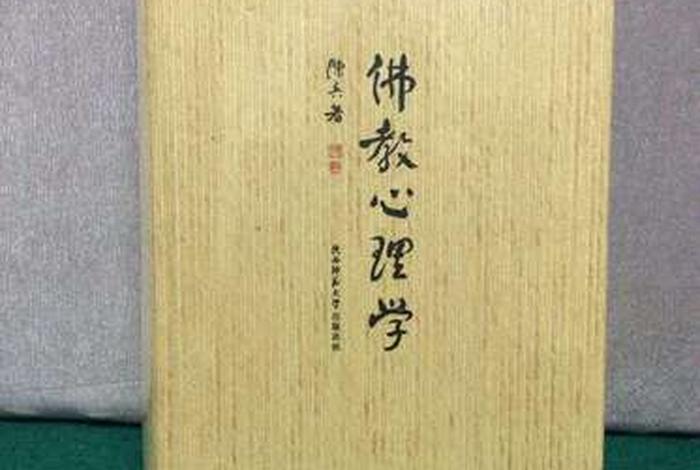 佛教心理学
陈兵著
陕西师范大学出版总社